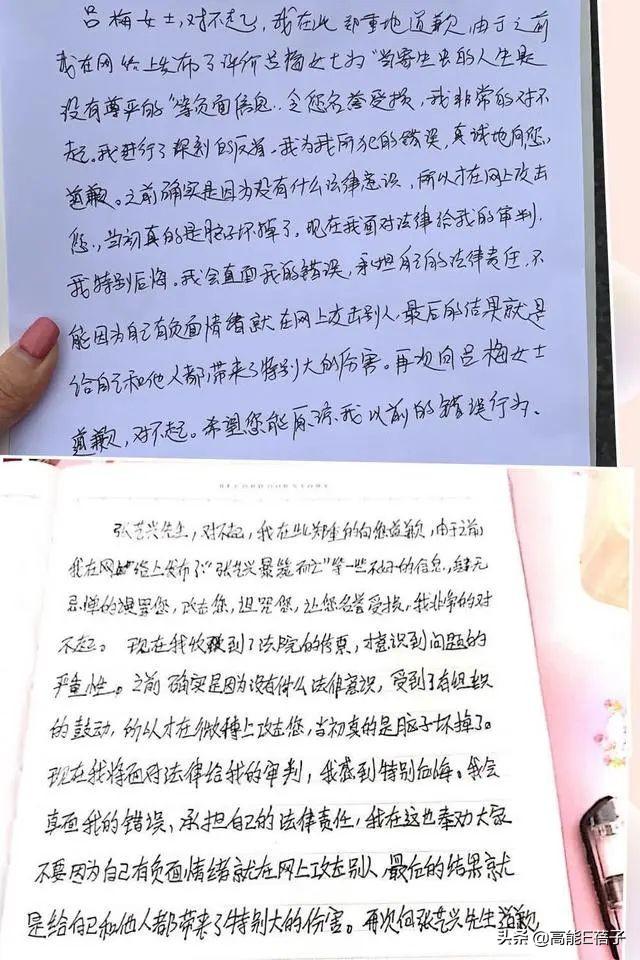 吕梅女士,对不起,我在此郑重地道歉,由于之前
我在网络上发布了评价吕梅女士为"当寄生虫的人生是
没有尊严的"等负面信息.令您名誉受损,我非常的对不
起。我进行了深刻的反省。我为我所犯的错误,真诚地向您
道歉。之前确实是因为没有什么法律意识,所以才在网上攻击
您.,当初真的是脑子坏掉了,现在我面对法律给我的审判.
我特别后悔。我会直面我的错误,承担自己的法律责任.不
能因为自己有负面情绪就在网上攻击别人.最后的结果就是
给自己和他人都带来了特别大的伤害。再次向吕梅女士
道歉,对不起。希望您能原谅我以前的错误行为.
张艺兴先生,对不起,我在此郑重的向您道歉,由于之前
我在网络上发布了"张艺兴暴毙而亡"等一些不好的信息,肆无
忌惮的谩骂您,攻击您,诅咒您,让您名誉受损,我非常的对
不起。现在我收到了法院的传票,才意识到问题的
严重性。之前确实是因为没有什么法律意识,受到了有组织
的鼓动,所以才在微博上攻击您,当初真的是脑子坏掉了。
现在我将面对法律给我的审判,我感到特别后悔。我会
直面我的错误、承担自己的法律责任,我在这也奉劝大家
不要因为自己有负面情绪就在网上攻击别人,最后的结果就
是给自己和他人都带来了特别大的伤害。再次向张艺兴先生道歉
头条 @高能E蓓子